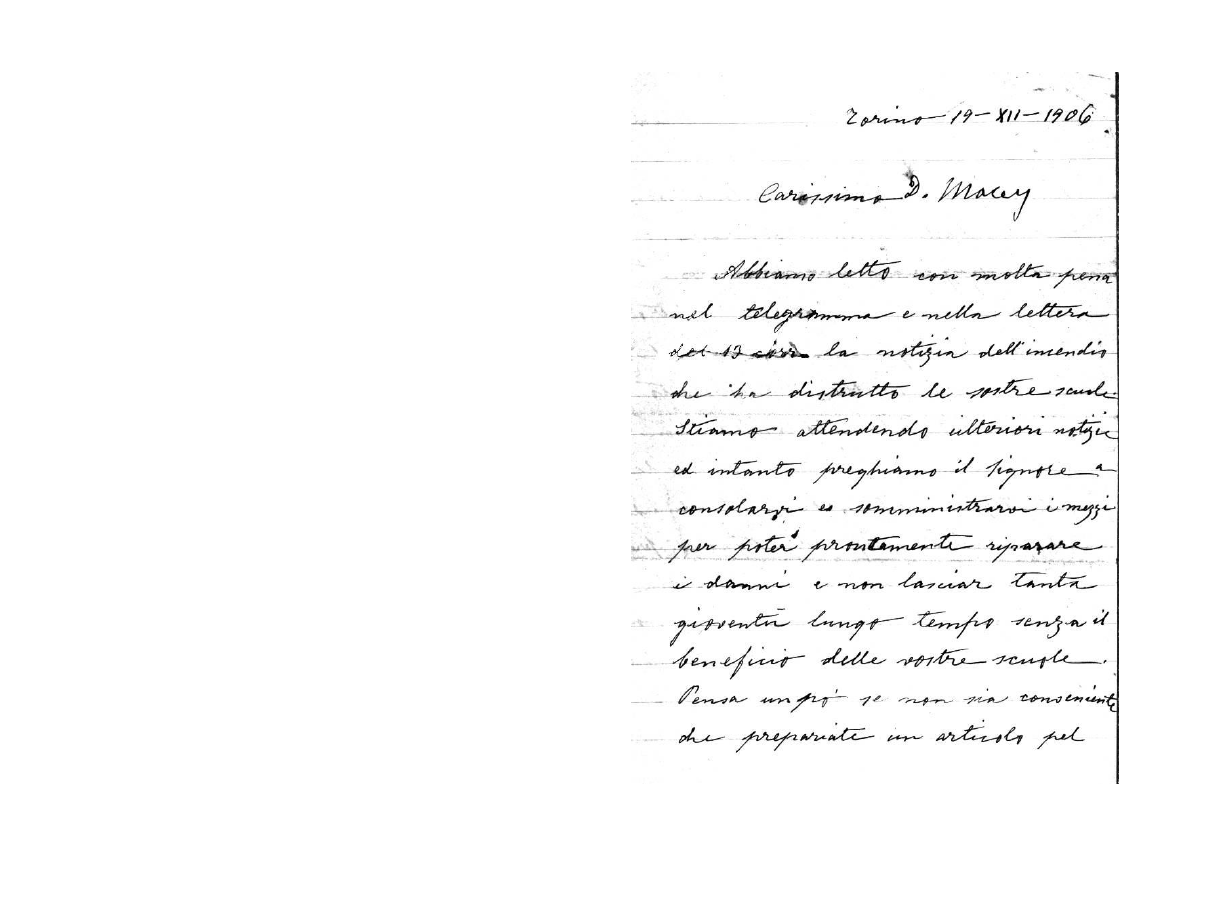 Torino 19-XII-1906
Carissimo D. Macey
Abbiamo letto con molta pena
nel telegramma e nella lettera
del 13 corr. la notizia dell'incendio
che ha distrutto le vostre scuole.
Stiamo attendendo ulteriori notizie
ed intanto preghiamo il Signore a
consolarvi e somministrarvi i mezzi
per poter prontamente riparare
i danni e non lasciar tanta
gioventù lungo tempo senza il
beneficio delle vostre scuole.
Pensa un pò se non sia conveniente
che prepariate un articolo pel